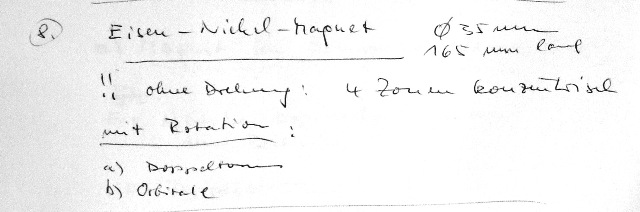 8. Eisen-Nickel-Magnet ⌀ 35 mm
165 mm lang
!! ohne Drehung: 4 Zonen konzentrisch
mit Rotation:
a) Doppeltorus
b) Orbitale